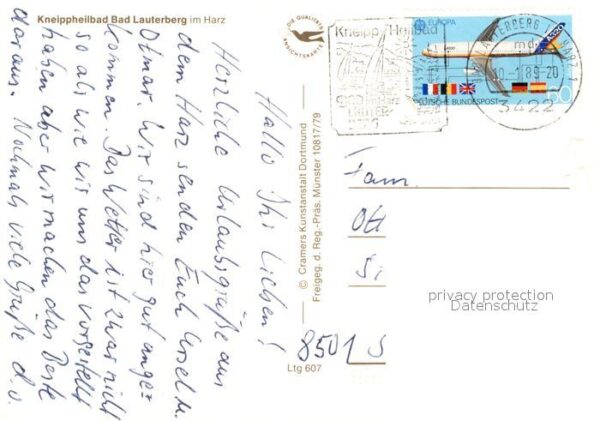 Kneippheilbad Bad Lauterberg im Harz
Hallo Ihr Lieben!
Herzliche Urlaubsgrüße aus
dem Harz senden Euch Ursel u.
Otmar. Wir sind hier gut ange-
kommen. Das Wetter ist zwar nicht
so als wie wir uns das vorgestellt
haben aber wir machen das Beste
daraus. Nochmals viele Grüße d.o.
DIE QUALITÄTS
ANSICHTSKARTE
© Cramers Kunstanstalt Dortmund
Freigeg. d. Reg.-Präs. Münster 10817/79
Ltg 607
Kneipp Heilbad
EUROPA
DEUTSCHE BUNDESPOST
60
LAUTERBERG
md
10.-1.89-20
3422
Fam.
Ott
Si
8501 S
privacy protection
Datenschutz